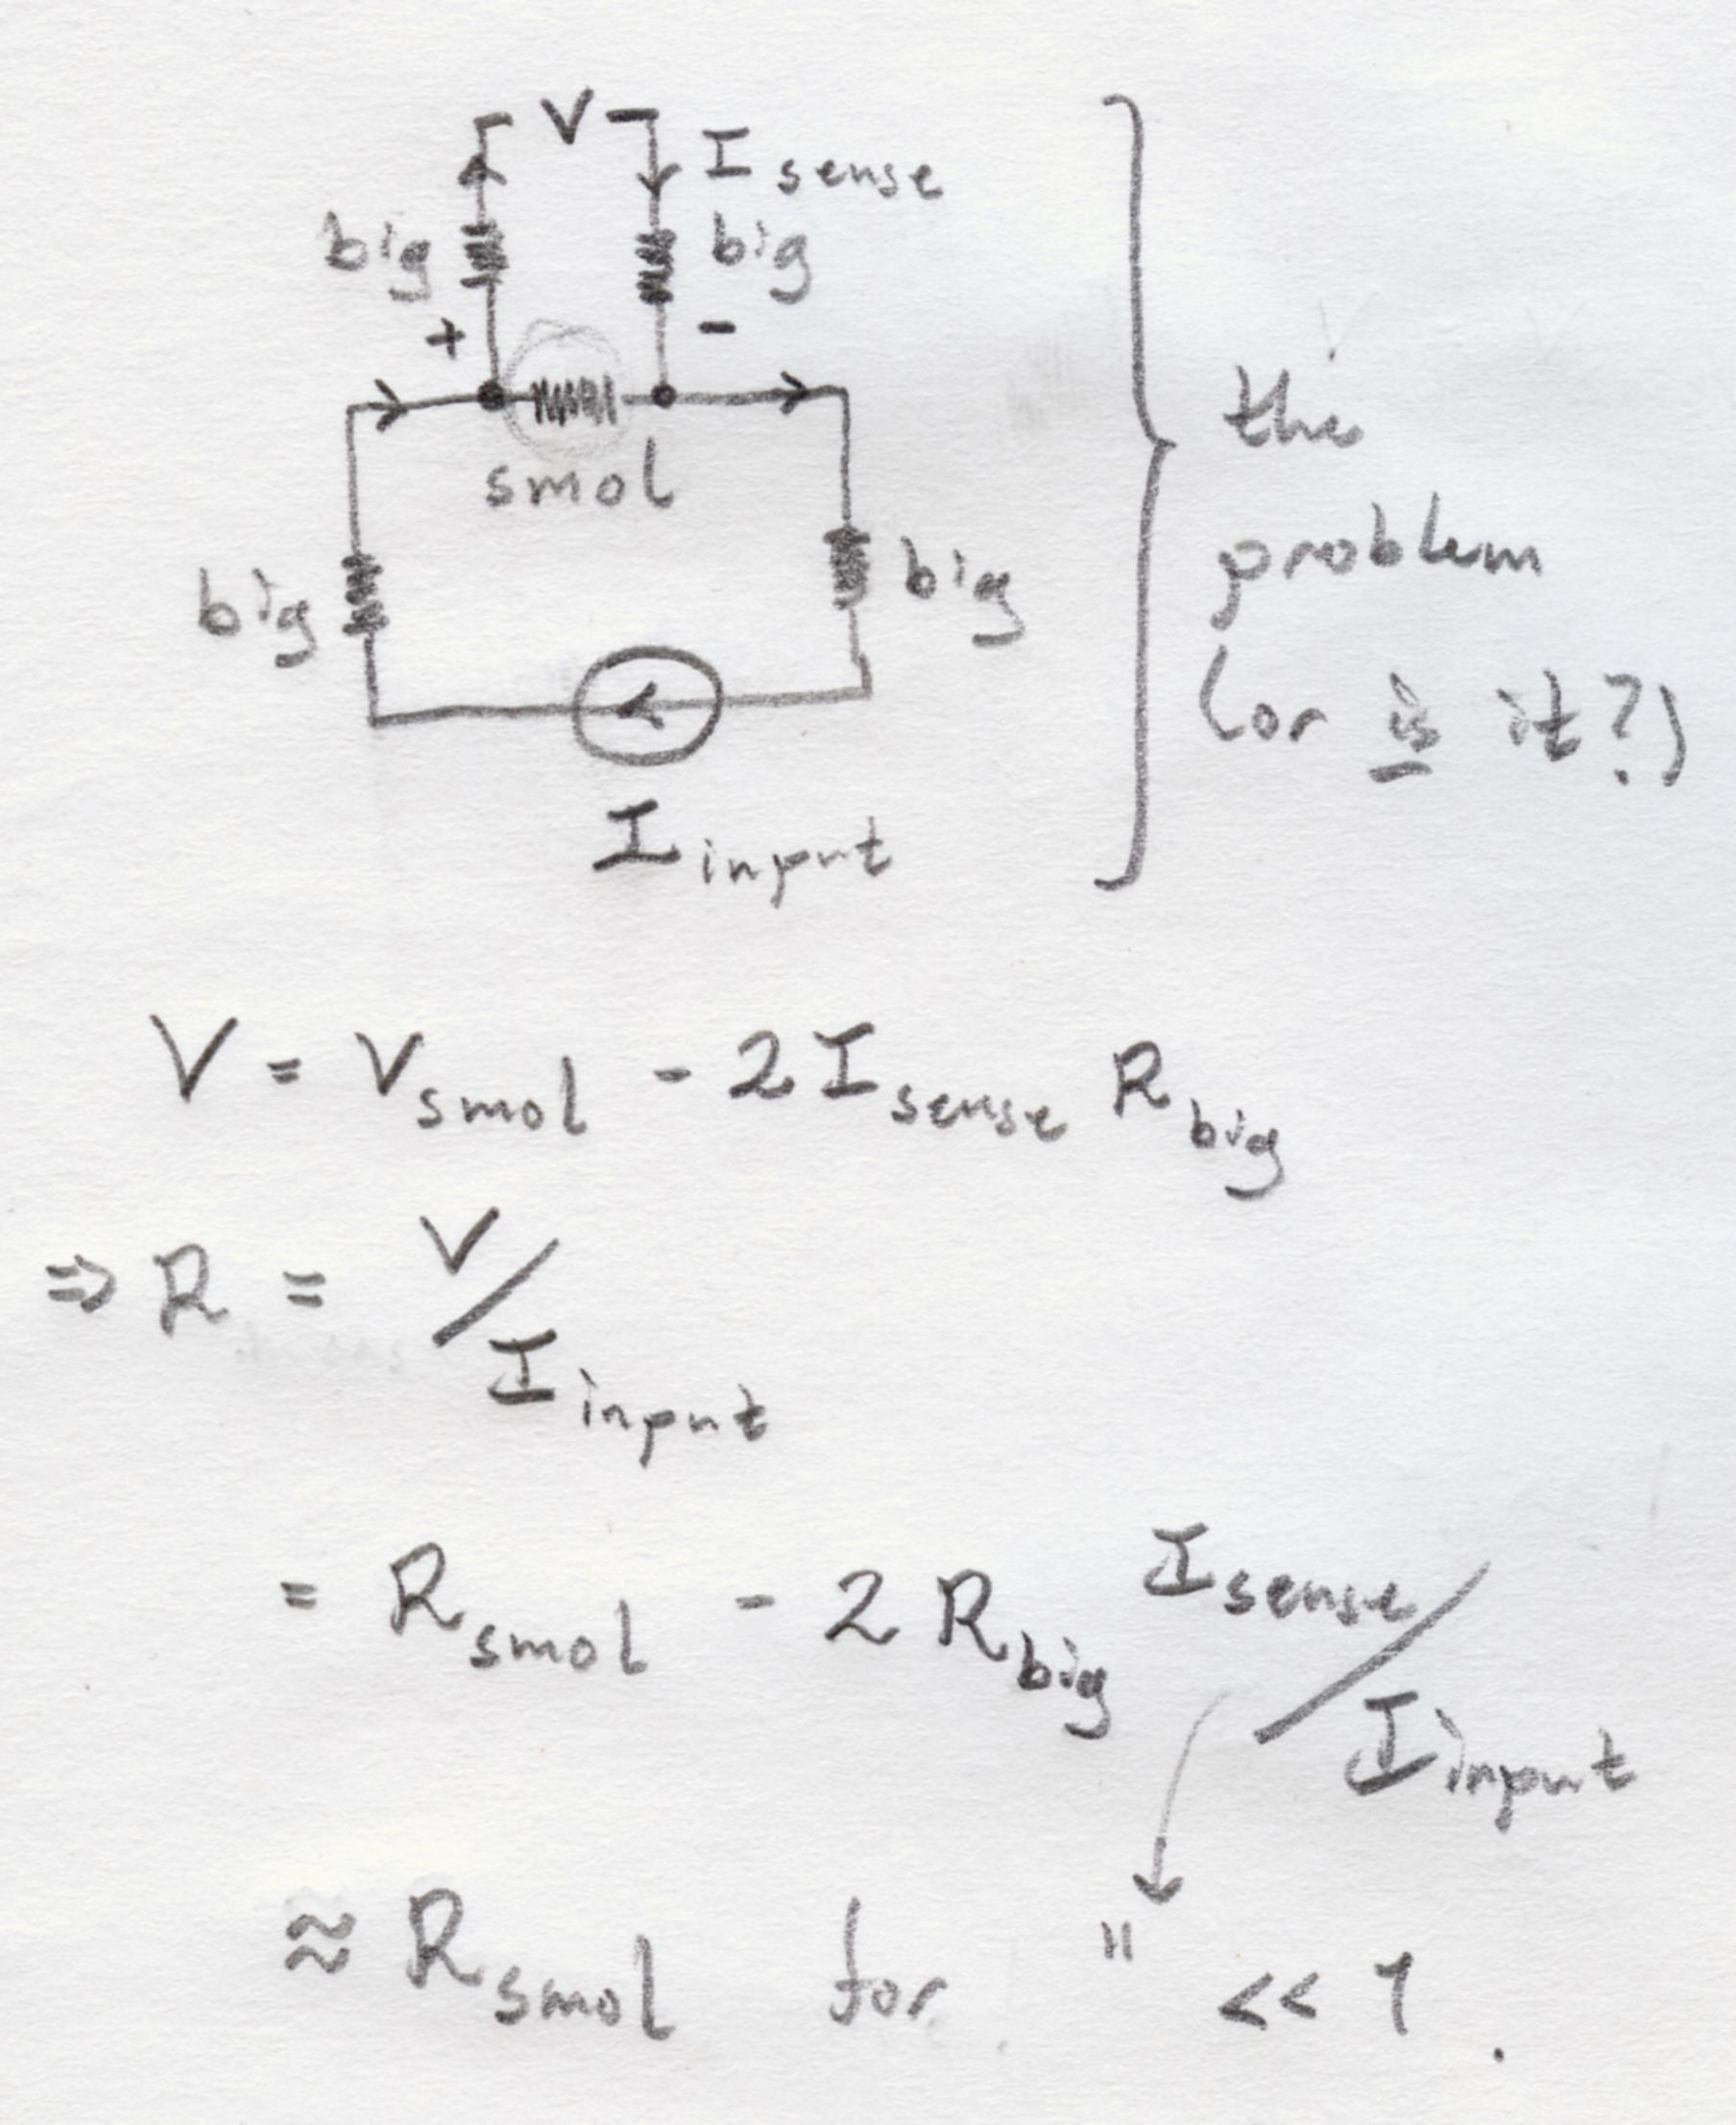 V I sense
big big
+ -
smol
big big
I input
the
problem
(or is it?)
V = V smol - 2 I sense R big
⇒ R = V / I input
= R smol - 2 R big I sense / I input
≈ R smol for " << 1.